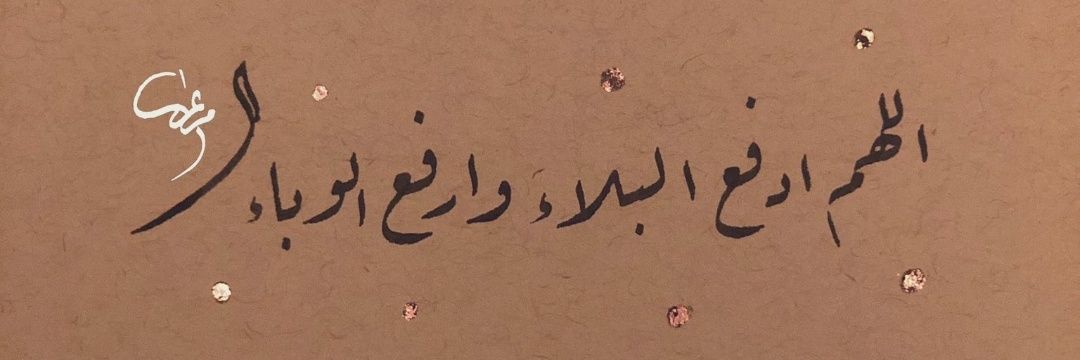 اللهم ادفع البلاء وارفع الوباء